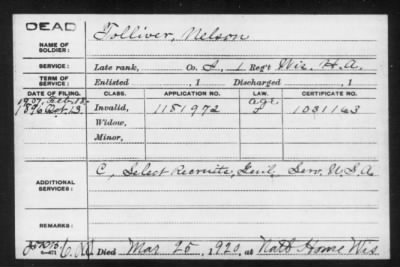 DEAD
NAME OF SOLDIER: Tolliver, Nelson
SERVICE: Late rank, Co. I, 1 Reg't Wis. H. A.
TERM OF SERVICE: Enlisted , 1 Discharged , 1
DATE OF FILING. CLASS. APPLICATION NO. LAW. CERTIFICATE NO.
1907, Feb. 18. age
1896 Oct. 13. Invalid, 1181972 1031163
Widow,
Minor,
ADDITIONAL SERVICES: C, Select Recruits, Genl. Serv. U.S.A.
REMARKS:
Died Mar 25, 1920, at Natl Home Wis.